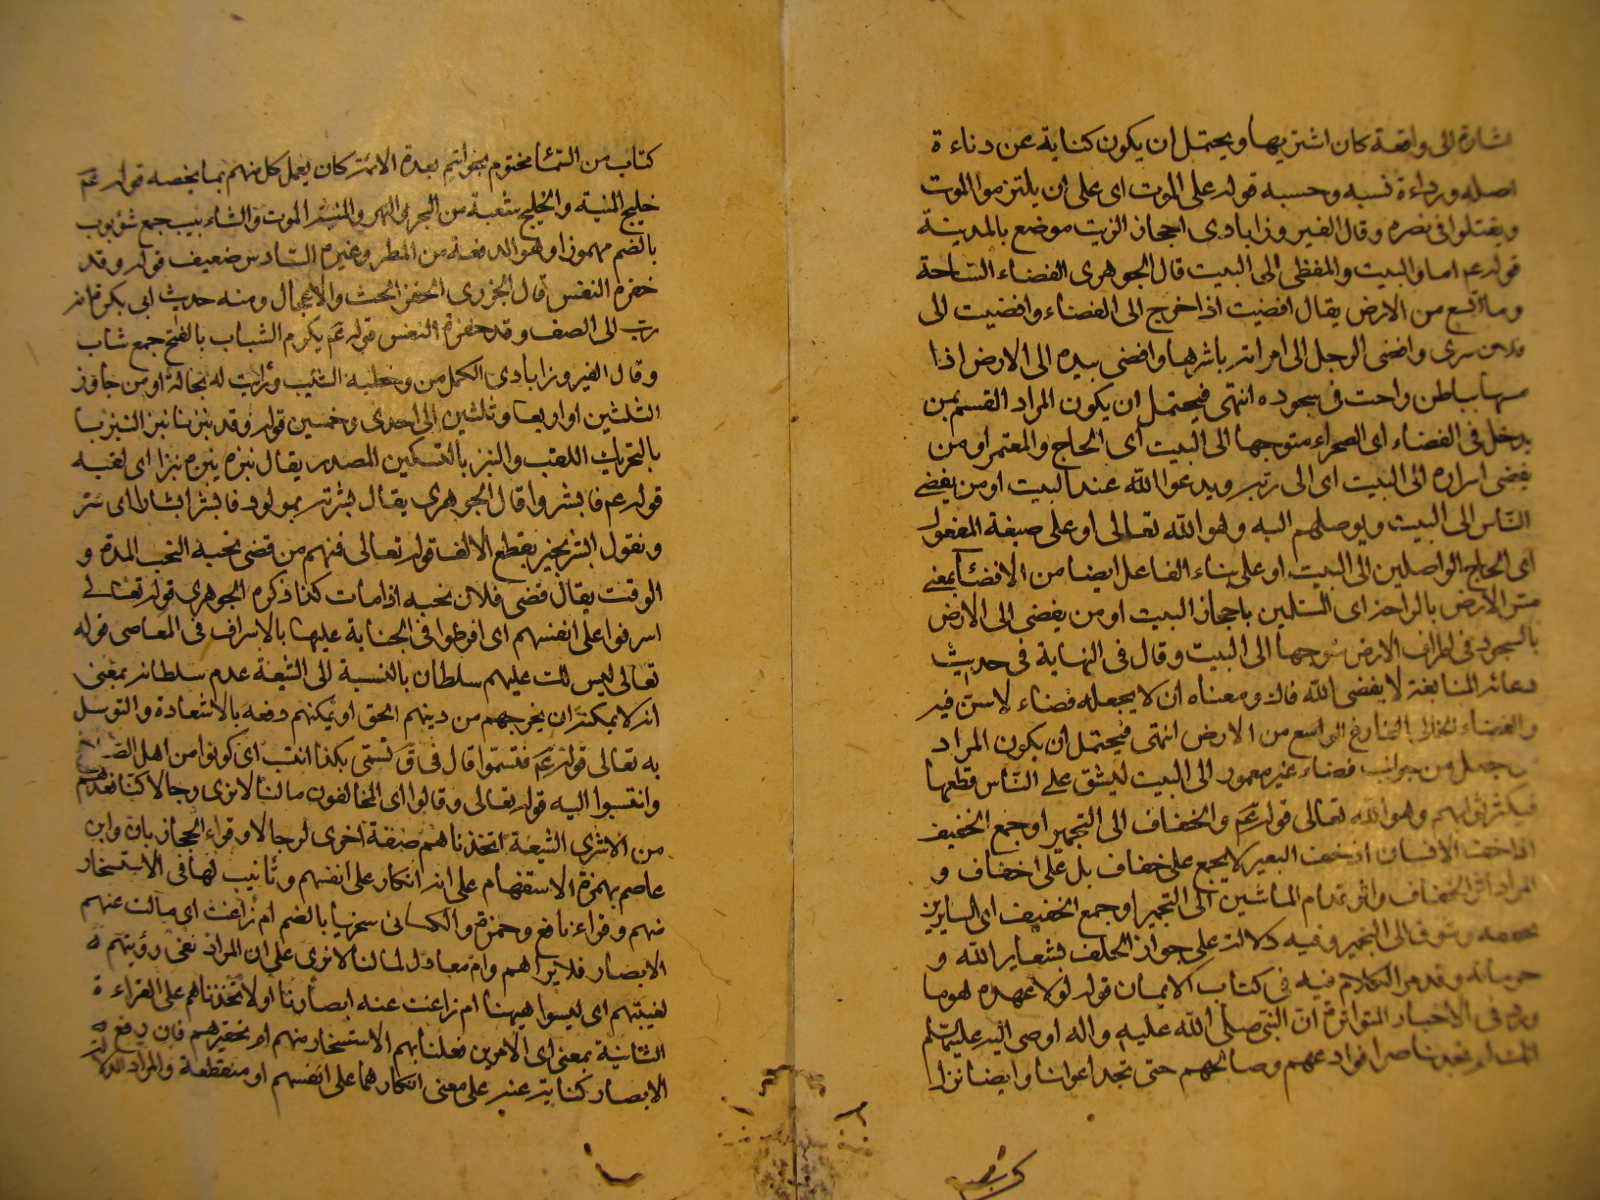 اشارة الى واقعة كان اشتريها ويحتمل ان يكون كناية عن دناءة
اصله ورداءة نسبه وحسبه قوله على الموت اى على ان يلتزموا الموت
ويقتلوا فى نصره وقال الفيروزابادى احجار الزيت موضع بالمدينة
قوله عم اما والبيت والمفظى الى البيت قال الجوهرى الفضاء الساحة
وما اتسع من الارض يقال افضيت اذا خرج الى الفضاء وافضيت الى
فلان سرى وافضى الرجل الى امراته باشرها وافضى بيده الى الارض اذا
مسها بباطن راحته فى سجوده انتهى فيحتمل ان يكون المراد القسم بمن
يدخل فى الفضاء اى الصحراء متوجها الى البيت اى الحاج والمعتمر او من
يفضى اسراره الى البيت اى الى ربه ويدعوا الله عند البيت او من يفضى
الناس الى البيت ويوصلهم اليه وهو الله تعالى او على صيغة المفعول
اى الحاج الواصلين الى البيت او على بناء الفاعل ايضا من الافضاء بمعنى
مس الارض بالراحة اى المستلمين باحجار البيت او من يفضى الى الارض
بالسجود فى اطراف الارض متوجها الى البيت وقال فى النهاية فى حديث
دعائه للنابغة لا يفضى الله فاك ومعناه ان لا يجعله فضاء لا سن فيه
والفضاء الخالى الفارغ الواسع من الارض انتهى فيحتمل ان يكون المراد
جعل من جوانب فضاء غير معمور الى البيت ليشق على الناس قطعها
فيكثر ثوابهم وهو الله تعالى قوله عم والخفاف الى التجمير او جمع الخفيف
اذا خف الانسان اذ خف البعير لا يجمع على خفاف بل على اخفاف و
المراد اثر الخفاف واثر تمام الماشين الى التجمير او جمع الخفيف اى السايرين
بخفة وشوق الى التجمير وفيه دلالة على جواز الحلف بشعاير الله و
حرماته وقد مر الكلام فيه فى كتاب الايمان قوله لولا عهد هو ما
ورد فى الاخبار المتواترة ان النبى صلى الله عليه واله اوصى اليه عليه السلم
انك ان لم تجد ناصرا فوادعهم وصالحهم حتى تجد اعوانا وايضا نزل
كتاب من السماء مختوم بخواتيم بعدة الائمة كان يعمل كل منهم بما يخصه قوله عم
خليج المنية والخليج شعبة من البحر والنهر والمنية الموت والشابيب جمع شؤبوب
بالضم مهموزا وهو الدفعة من المطر وغيره السادس ضعيف قوله وقد
حفزه النفس قال الجزرى الحفز الحث والاعجال ومنه حديث ابى بكرة انه
دب الى الصف وقد حفزه النفس قوله عم يكرم الشباب بالفتح جمع شاب
وقال الفيروزابادى الكهل من وخطه الشيب ورايت له بجالة او من جاوز
الثلثين او اربعا وثلثين الى احدى وخمسين قوله وقد نبزنا نبز النبز با
بالتحريك اللقب والنبز بالتسكين المصدر يقال نبزه ينبزه نبزا اى لقبه
قوله عم فابشروا قال الجوهرى يقال بشرته بمولود فابشر ابشارا اى سر
وتقول ابشر بخير بقطع الالف قوله تعالى فمنهم من قضى نحبه النحب المدة و
الوقت يقال قضى فلان نحبه اذا مات كذا ذكره الجوهرى قوله تعالى
اسرفوا على انفسهم اى افرطوا فى الجناية عليها بالاسراف فى المعاصى قوله
تعالى ليس لك عليهم سلطان بالنسبة الى الشيعة عدم سلطانه بمعنى
انه لا يمكنه ان يخرجهم من دينهم الحق او يمكنهم دفعه بالاستعاذة والتوسل
به تعالى قوله عم فتسموا قال فى ق تسمى بكذا انتسب اى كونوا من اهل
وانتسبوا اليه قوله تعالى وقالوا اى المخالفون ما لنا لا نرى رجالا كنا نعدهم
من الاشرار اى الشيعة اتخذناهم صفة اخرى لرجالا وقراء الحجازيان وابن
عاصم بهمزة الاستفهام على انه انكار على انفسهم وتانيب لها فى الاستسخار
منهم وقراء نافع وحمزة والكسائى سخريا بالضم ام زاغت اى مالت عنهم
الابصار فلا نراهم وام معادل لما لنا لا نرى على ان المراد نفى رؤيتهم
لغيبتهم اى ليسوا هيهنا ام زاغت عنه ابصارنا او لاتخذناهم على القراءة
الثانية بمعنى اى الامرين فعلنا بهم الاستسخار منهم او تحقيرهم فان زيغ
الابصار كناية عنه على معنى انكارهما على انفسهم او منقطعة والمراد الدلالة